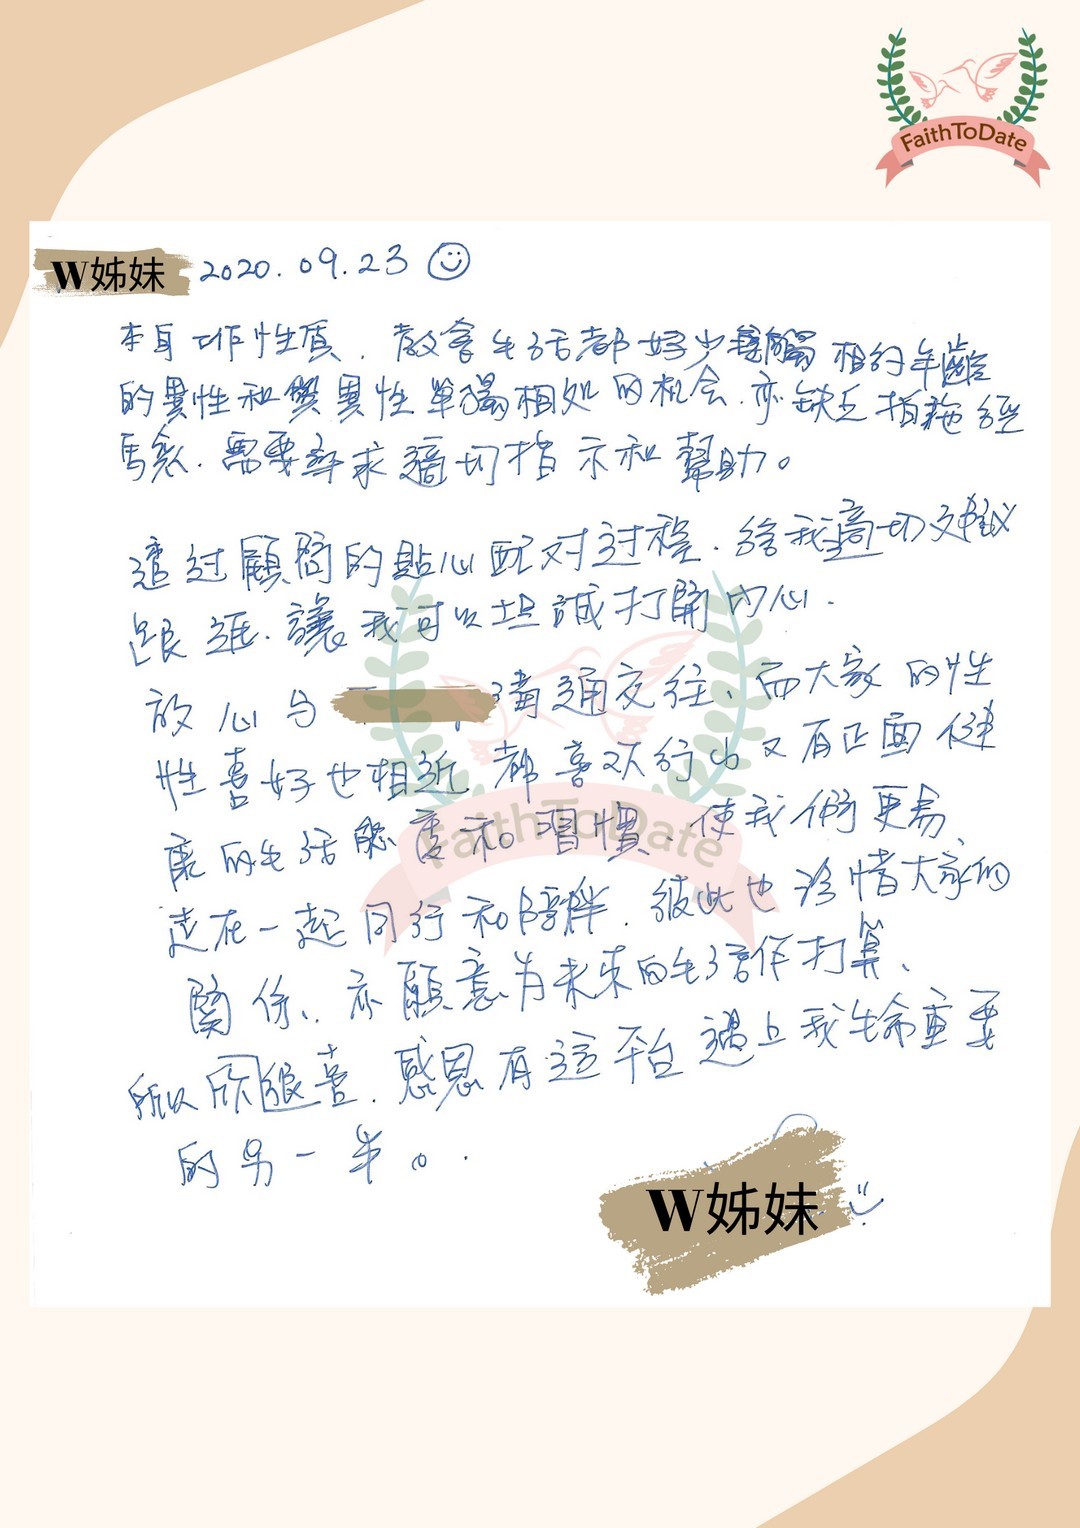 FaithToDate
W姊妹 2020.09.23
本身工作性质,教會生活都好少接觸相約年齡
的異性和與異性單獨相处的机会.亦缺乏拍拖經
馬僉.需要尋求適切指示和幫助。
透过顧問的貼心配对过程.給我適切建議
跟進.讓我可以坦誠打開内心.
放心与 溝通交往、而大家的性
性喜好也相近 都喜欢行山又有正面健
康的生活態度和習慣 使我們更易
走在一起同行和陪伴.彼此也珍惜大家的
関係、亦願意为未來的生活作打算、
所以很喜.感恩有這平台遇上我生命重要
的另一半。
W姊妹
FaithToDate